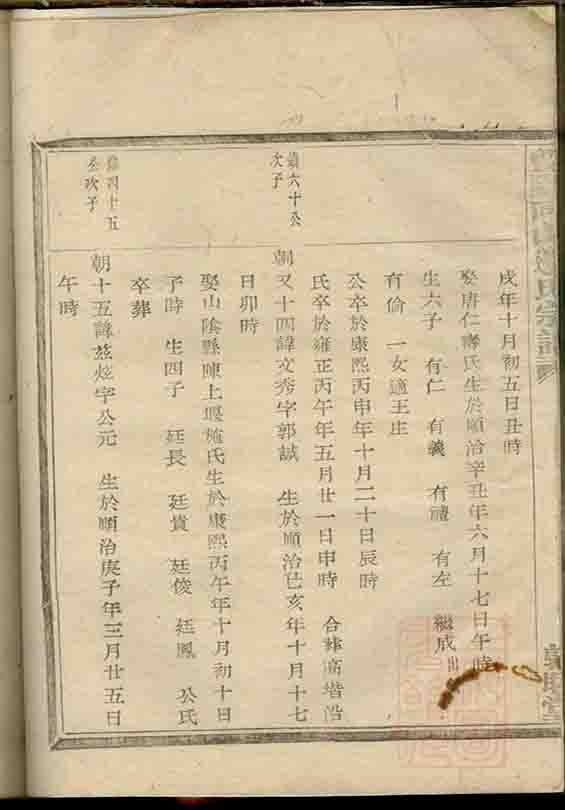 戌年十月初五日丑時
娶唐仁壽氏生於順治辛丑年六月十七日午時
生六子 有仁 有義 有禮 有左 繼成出
有倫 一女適王庄
公卒於康熙丙申年十月二十日辰時
氏卒於雍正丙午年五月廿一日申時 合葬高堦沿
六十公
次子
朝又十四諱文秀字郭誠 生於順治己亥年十月十七
日卯時
娶山陰縣陳上堰施氏生於康熙丙午年十月初十日
子時 生四子 廷長 廷貴 廷俊 廷鳳 公氏
卒葬
四十五
公次子
朝十五諱茲炫字公元 生於順治庚子年三月廿五日
午時
氏宗譜